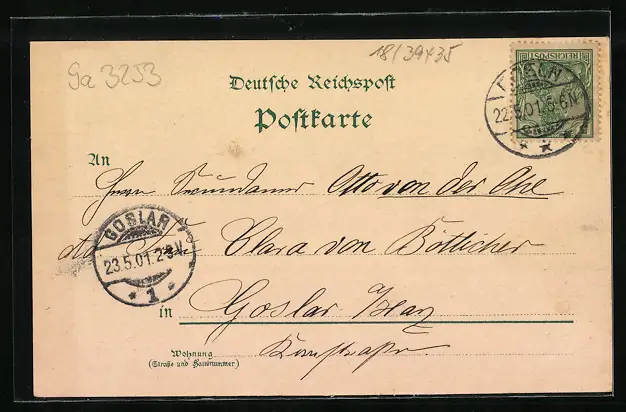 Ga 3253
18/39435
Deutsche Reichspost
Postkarte
REICHSPOST
22.5.01.5-6N
* *
An
Herrn Secundaner Otto von der Ohe
Clara von Bötticher
GOSLAR
23.5.01.2-3N
* 1 *
in Goslar Harz
Wohnung
(Straße und Hausnummer)